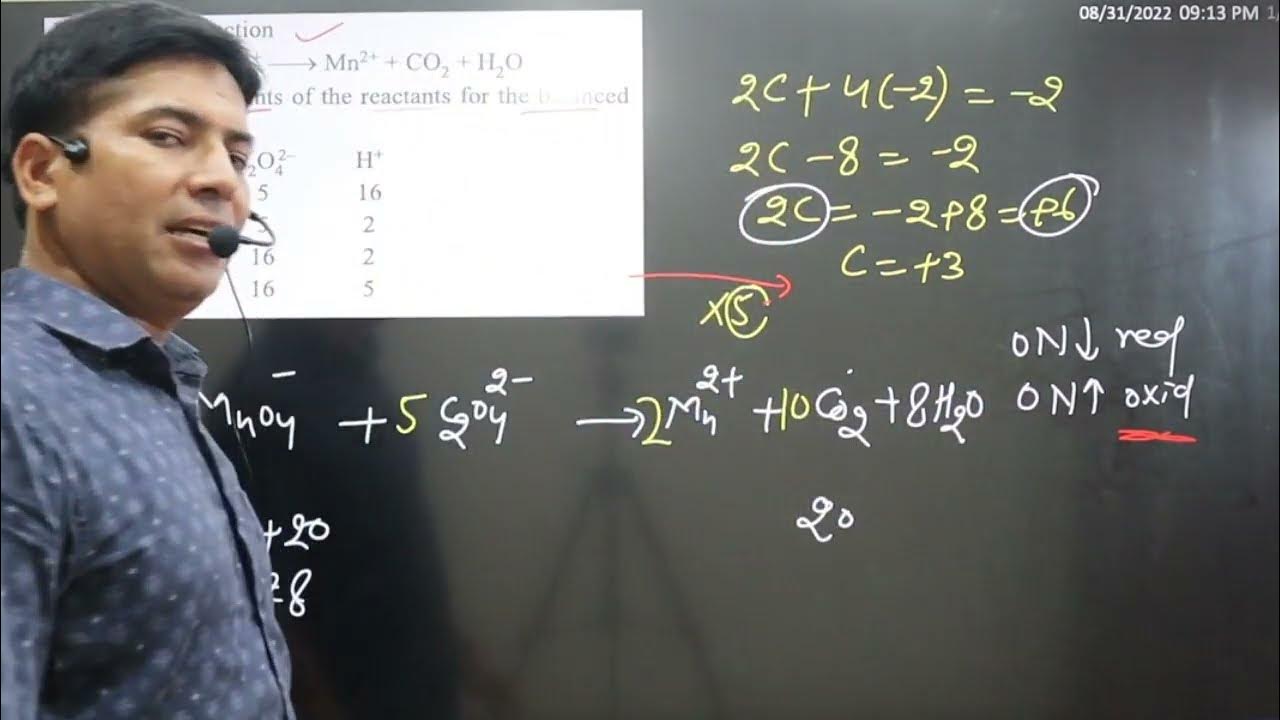 08/31/2022 09:13 PM
ction
⟶ Mn²⁺ + CO₂ + H₂O
nts of the reactants for the balanced
₂O₄²⁻ H⁺
5 16
5 2
16 2
16 5
2C + 4(-2) = -2
2C - 8 = -2
2C = -2+8 = +6
C = +3
×5
MnO₄⁻ + 5 C₂O₄²⁻ ⟶ 2Mn²⁺ + 10CO₂ + 8H₂O
ON↓ red
ON↑ oxid
+20
=8
20